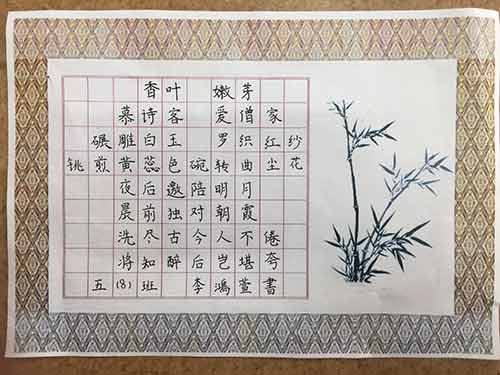 香叶 嫩芽
慕诗客 爱僧家
碾雕白玉 罗织红纱
铫煎黄蕊色碗转曲尘花
夜后邀陪明月
晨前独对朝霞
洗尽古今人不倦
将知醉后岂堪夸
五(8)班 李鸿萱書